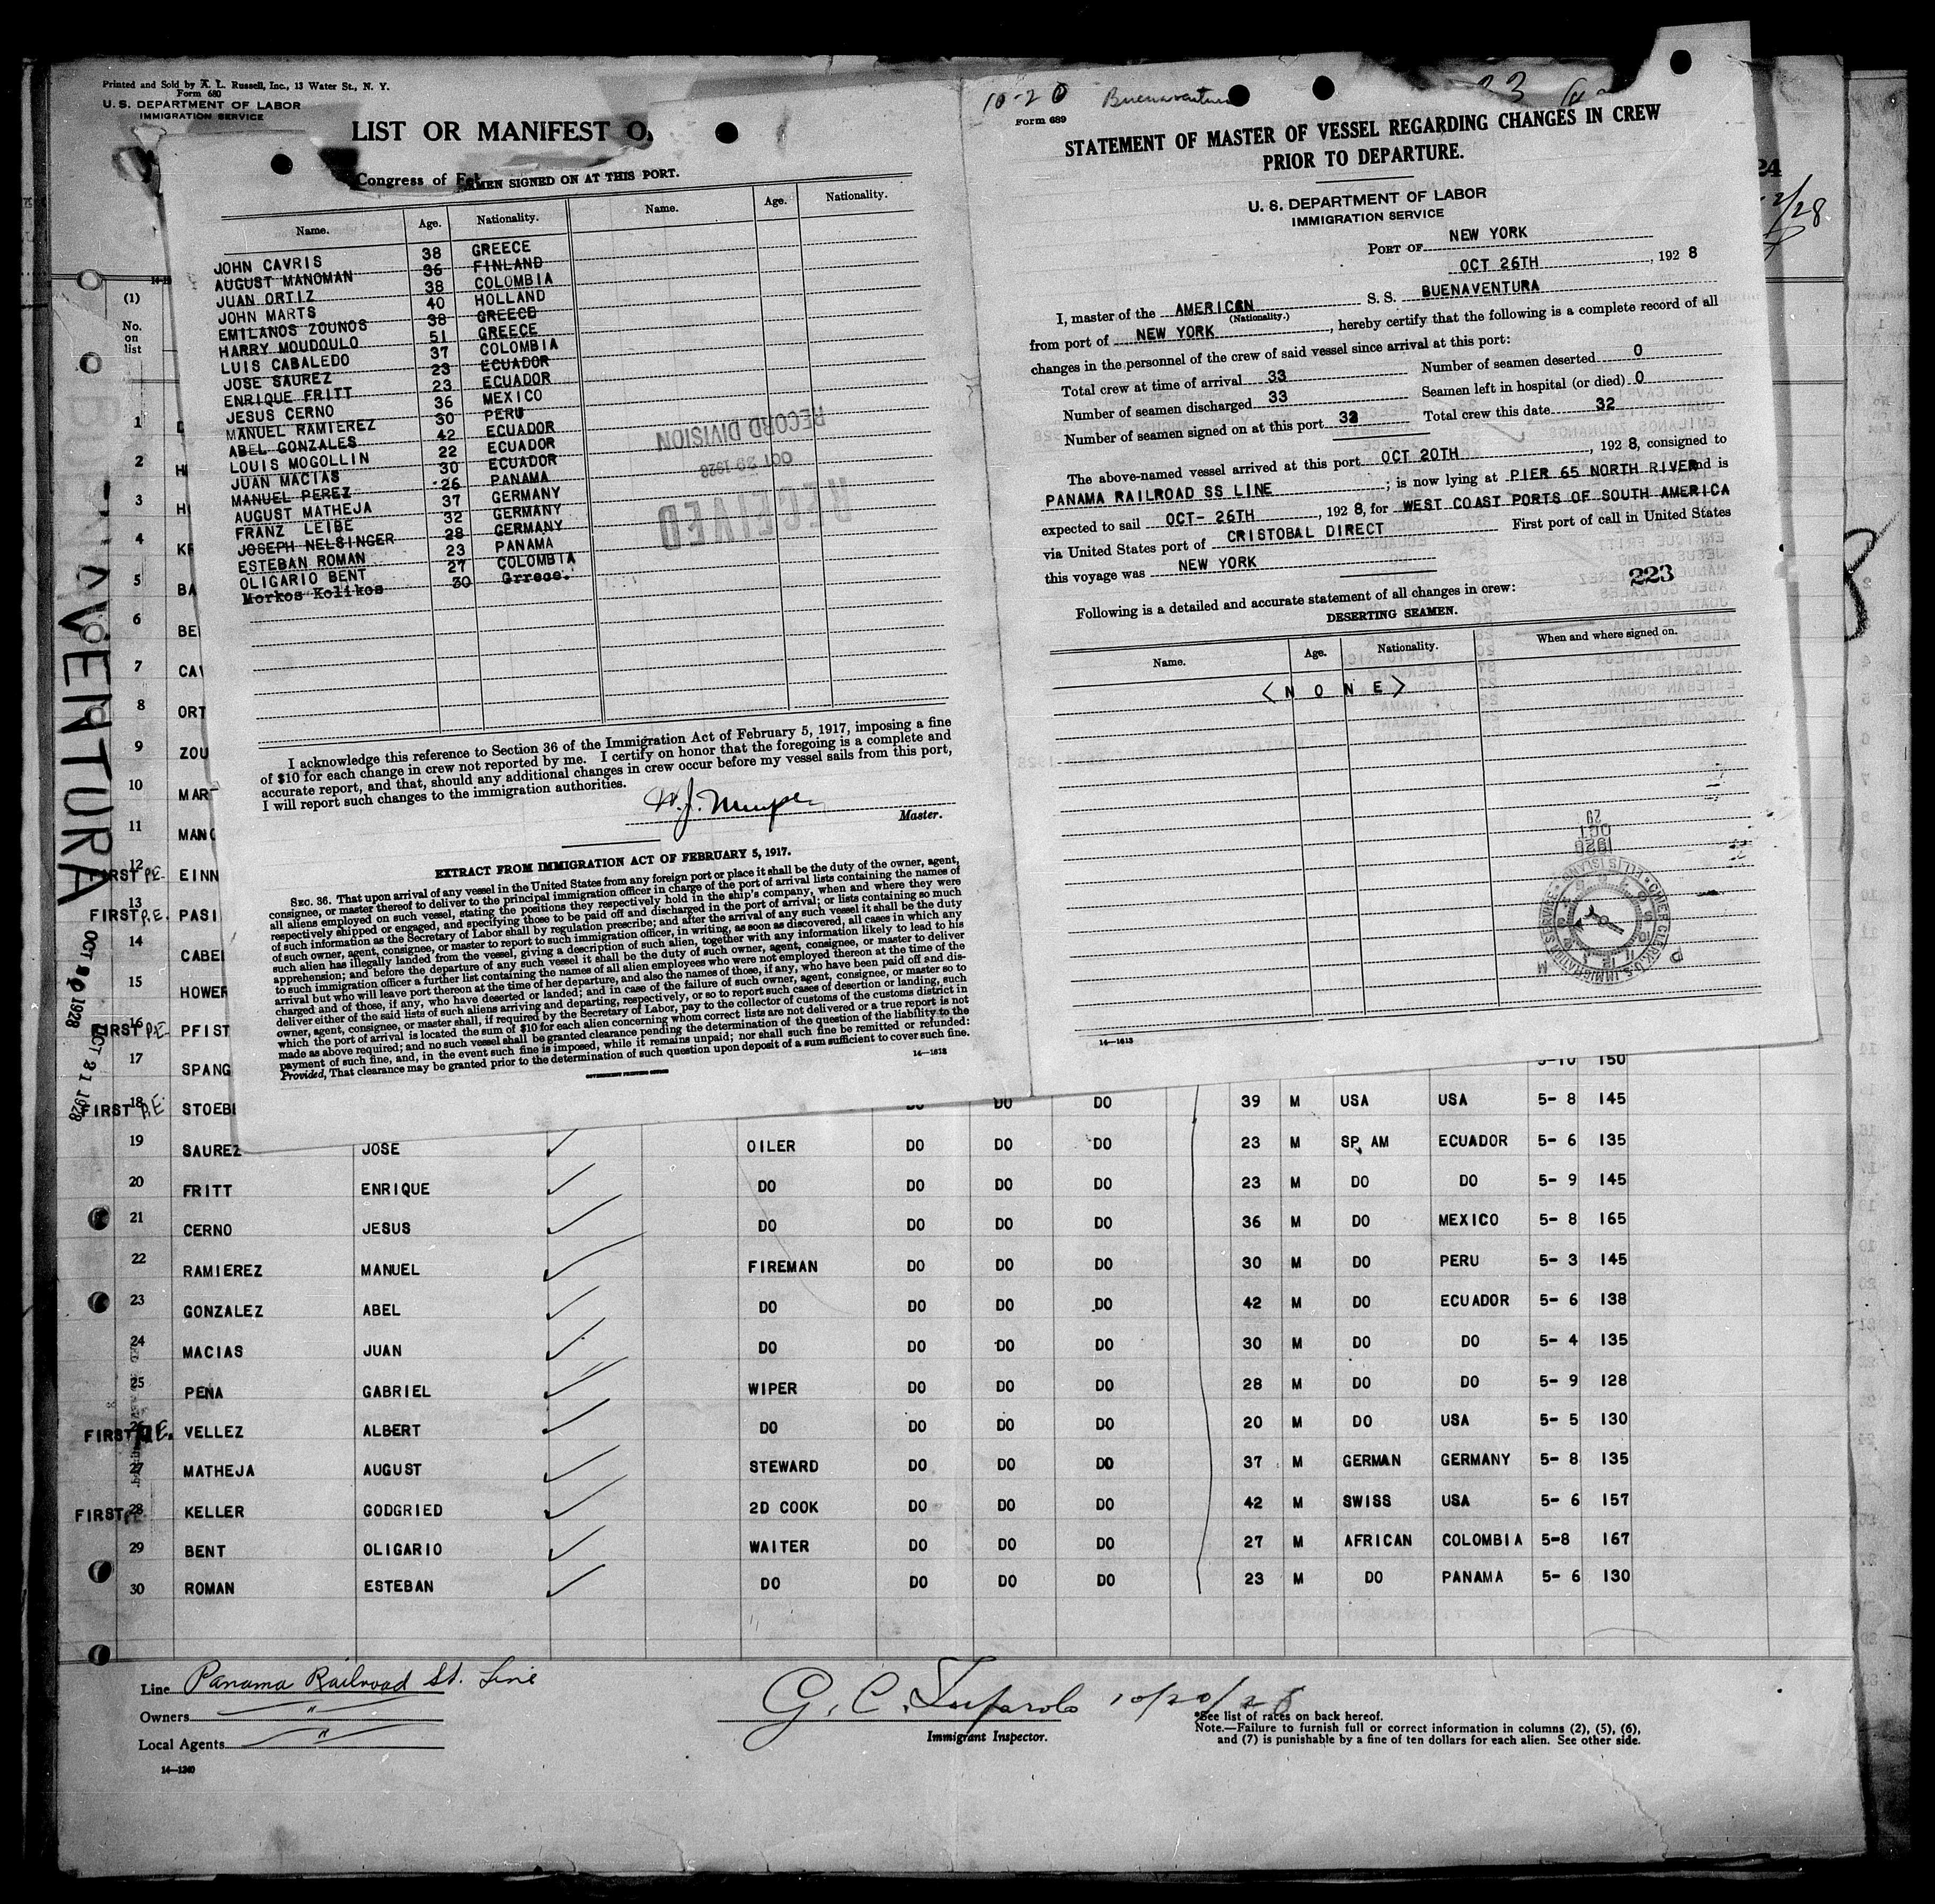 Printed and Sold by A. L. Russell, Inc., 13 Water St., N. Y.
Form 680
U. S. DEPARTMENT OF LABOR
IMMIGRATION SERVICE
LIST OR MANIFEST O
Congress of
MEN SIGNED ON AT THIS PORT.
Name. Age. Nationality. Name. Age. Nationality.
JOHN CAVRIS 38 GREECE
AUGUST MANOMAN 36 FINLAND
JUAN ORTIZ 38 COLOMBIA
JOHN MARTS 40 HOLLAND
EMILANOS ZOUNOS 38 GREECE
HARRY MOUDOULO 51 GREECE
LUIS CABALEDO 37 COLOMBIA
JOSE SAUREZ 23 ECUADOR
ENRIQUE FRITT 23 ECUADOR
JESUS CERNO 36 MEXICO
MANUEL RAMIEREZ 30 PERU
ABEL GONZALES 42 ECUADOR
LOUIS MOGOLLIN 22 ECUADOR
JUAN MACIAS 30 ECUADOR
MANUEL PEREZ 26 PANAMA
AUGUST MATHEJA 37 GERMANY
FRANZ LEIBE 32 GERMANY
JOSEPH NELSINGER 28 GERMANY
ESTEBAN ROMAN 23 PANAMA
OLIGARIO BENT 27 COLOMBIA
Morkos Kolikos 30 Grrece.
RECORD DIVISION
OCT 29 1928
RECEIVED
I acknowledge this reference to Section 36 of the Immigration Act of February 5, 1917, imposing a fine
of $10 for each change in crew not reported by me. I certify on honor that the foregoing is a complete and
accurate report, and that, should any additional changes in crew occur before my vessel sails from this port,
I will report such changes to the immigration authorities.
Master.
EXTRACT FROM IMMIGRATION ACT OF FEBRUARY 5, 1917.
SEC. 36. That upon arrival of any vessel in the United States from any foreign port or place it shall be the duty of the owner, agent,
consignee, or master thereof to deliver to the principal immigration officer in charge of the port of arrival lists containing the names of
all aliens employed on such vessel, stating the positions they respectively hold in the ship's company, when and where they were
respectively shipped or engaged, and specifying those to be paid off and discharged in the port of arrival; or lists containing so much
of such information as the Secretary of Labor shall by regulation prescribe; and after the arrival of any such vessel it shall be the duty
of such owner, agent, consignee, or master to report to such immigration officer, in writing, as soon as discovered, all cases in which any
such alien has illegally landed from the vessel, giving a description of such alien, together with any information likely to lead to his
apprehension; and before the departure of any such vessel it shall be the duty of such owner, agent, consignee, or master to deliver
to such immigration officer a further list containing the names of all alien employees who were not employed thereon at the time of the
arrival but who will leave port thereon at the time of her departure, and also the names of those, if any, who have been paid off and dis-
charged and of those, if any, who have deserted or landed; and in case of the failure of such owner, agent, consignee, or master so to
deliver either of the said lists of such aliens arriving and departing, respectively, or so to report such cases of desertion or landing, such
owner, agent, consignee, or master shall, if required by the Secretary of Labor, pay to the collector of customs of the customs district in
which the port of arrival is located the sum of $10 for each alien concerning whom correct lists are not delivered or a true report is not
made as above required; and no such vessel shall be granted clearance pending the determination of the question of the liability to the
payment of such fine, and, in the event such fine is imposed, while it remains unpaid; nor shall such fine be remitted or refunded:
Provided, That clearance may be granted prior to the determination of such question upon deposit of a sum sufficient to cover such fine.
14—1613
GOVERNMENT PRINTING OFFICE
10-20 Buenaventura
Form 689
STATEMENT OF MASTER OF VESSEL REGARDING CHANGES IN CREW
PRIOR TO DEPARTURE.
U. S. DEPARTMENT OF LABOR
IMMIGRATION SERVICE
PORT OF NEW YORK
OCT 26TH, 1928
I, master of the AMERICAN S. S. BUENAVENTURA
(Nationality.)
from port of NEW YORK, hereby certify that the following is a complete record of all
changes in the personnel of the crew of said vessel since arrival at this port:
Total crew at time of arrival 33 Number of seamen deserted 0
Number of seamen discharged 33 Seamen left in hospital (or died) 0
Number of seamen signed on at this port 32 Total crew this date 32
The above-named vessel arrived at this port OCT 20TH, 1928, consigned to
PANAMA RAILROAD SS LINE; is now lying at PIER 65 NORTH RIVER and is
expected to sail OCT- 26TH, 1928, for WEST COAST PORTS OF SOUTH AMERICA
via United States port of CRISTOBAL DIRECT First port of call in United States
this voyage was NEW YORK
223
Following is a detailed and accurate statement of all changes in crew:
DESERTING SEAMEN.
Name. Age. Nationality. When and where signed on.
< N O N E >
1928
OCT
29
CHIEF CLERK U.S. IMMIGRATION SERVICE ELLIS ISLAND
14—1613
24
(1)
No. on list
1
2 H
3 H
4 KR
5 BA
6 BE
7 CAV
8 ORT
9 ZOU
10 MAR
11 MANO
12 FIRST P.E. EINN
13 FIRST P.E. PASI
14 CABEL
15 HOWER
16 FIRST P.E. PFIST
17 SPANG 5-10 150
18 FIRST P.E. STOEB DO DO DO 39 M USA USA 5- 8 145
19 SAUREZ JOSE OILER DO DO DO 23 M SP. AM ECUADOR 5- 6 135
20 FRITT ENRIQUE DO DO DO DO 23 M DO DO 5- 9 145
21 CERNO JESUS DO DO DO DO 36 M DO MEXICO 5- 8 165
22 RAMIEREZ MANUEL FIREMAN DO DO DO 30 M DO PERU 5- 3 145
23 GONZALEZ ABEL DO DO DO DO 42 M DO ECUADOR 5- 6 138
24 MACIAS JUAN DO DO DO DO 30 M DO DO 5- 4 135
25 PENA GABRIEL WIPER DO DO DO 28 M DO DO 5- 9 128
26 FIRST P.E. VELLEZ ALBERT DO DO DO DO 20 M DO USA 5- 5 130
27 MATHEJA AUGUST STEWARD DO DO DO 37 M GERMAN GERMANY 5- 8 135
28 FIRST KELLER GODGRIED 2D COOK DO DO DO 42 M SWISS USA 5- 6 157
29 BENT OLIGARIO WAITER DO DO DO 27 M AFRICAN COLOMBIA 5-8 167
30 ROMAN ESTEBAN DO DO DO DO 23 M DO PANAMA 5- 6 130
VENTURA
OCT 20 1928
OCT 21 1928
Line Panama Railroad St. Line
Owners "
Local Agents "
14—1240
10/20/28
Immigrant Inspector.
*See list of races on back hereof.
Note.—Failure to furnish full or correct information in columns (2), (5), (6),
and (7) is punishable by a fine of ten dollars for each alien. See other side.